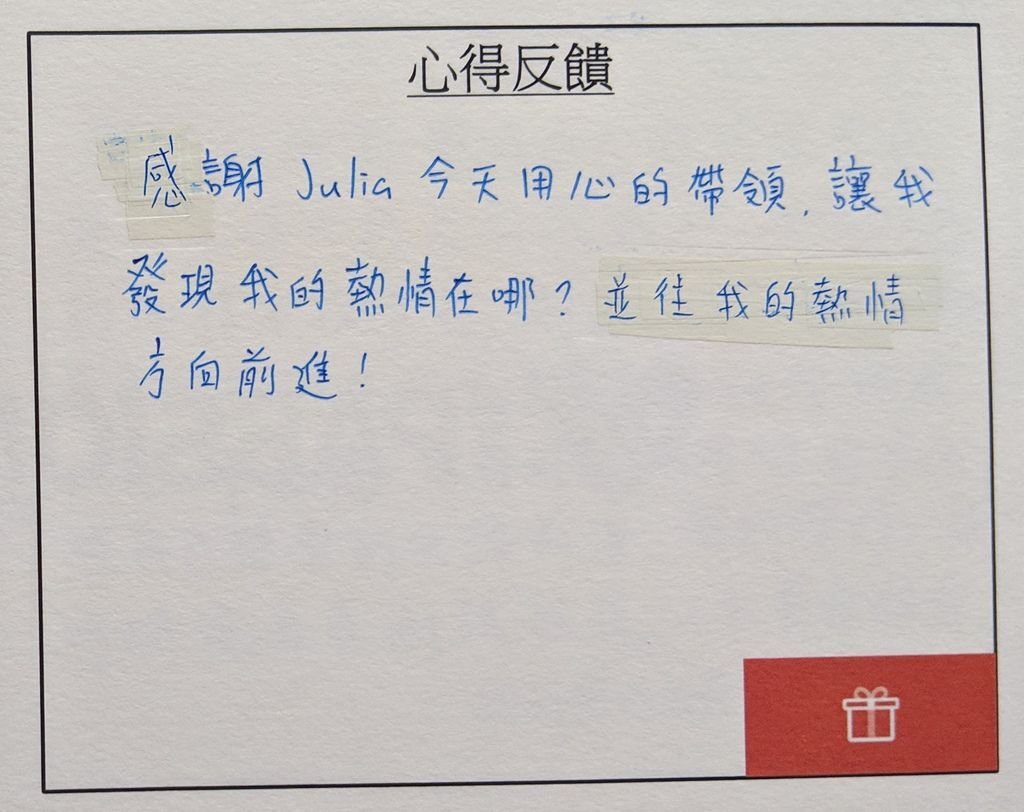 心得反饋
感謝 Julia 今天用心的帶領,讓我
發現我的熱情在哪?並往我的熱情
方向前進!